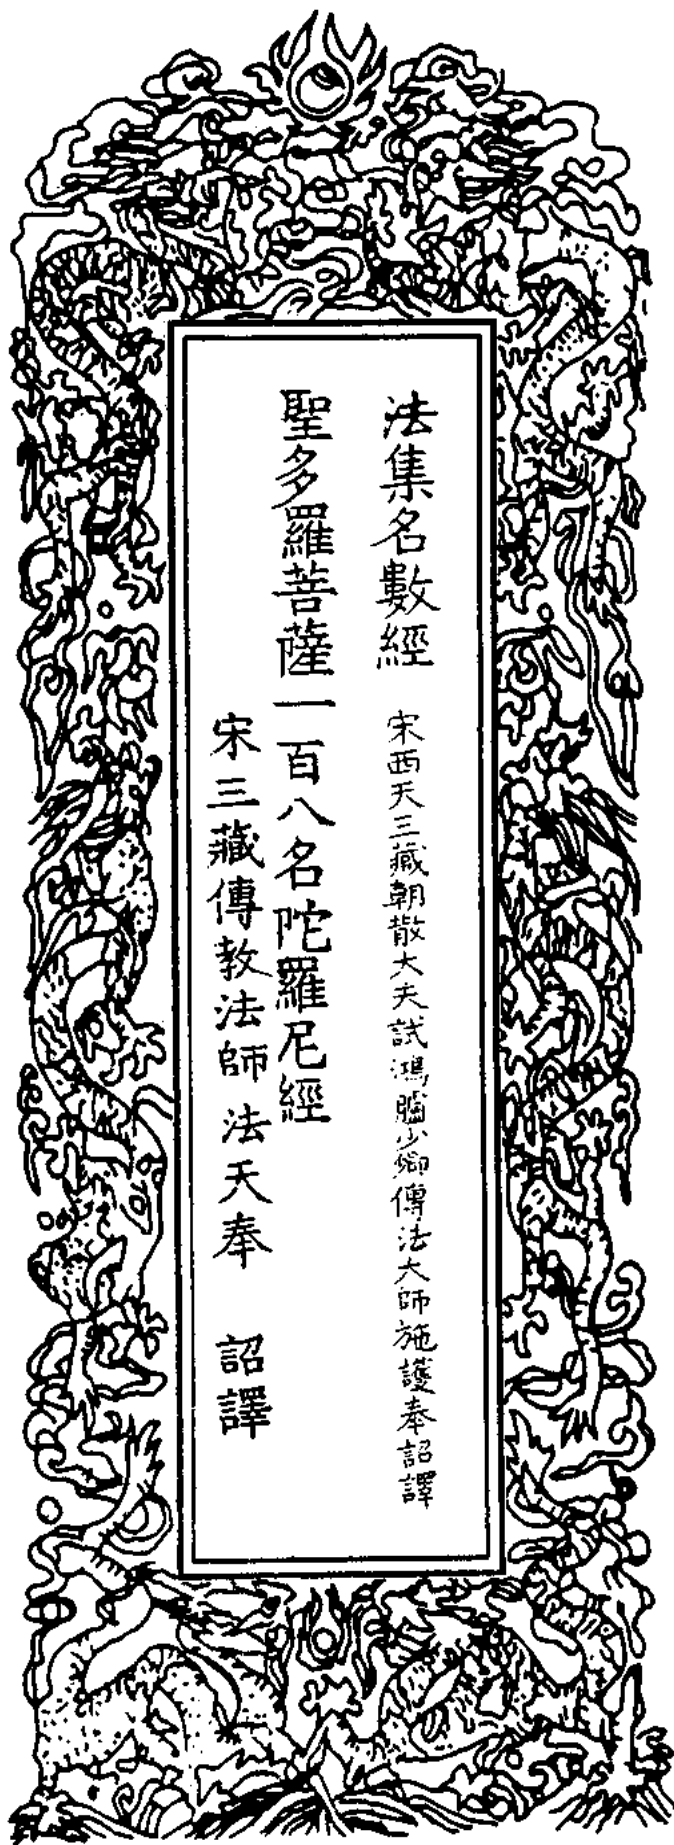 法集名數經 宋西天三藏朝散大夫試鴻臚少卿傳法大師施護奉詔譯
聖多羅菩薩一百八名陀羅尼經
宋三藏傳教法師法天奉 詔譯